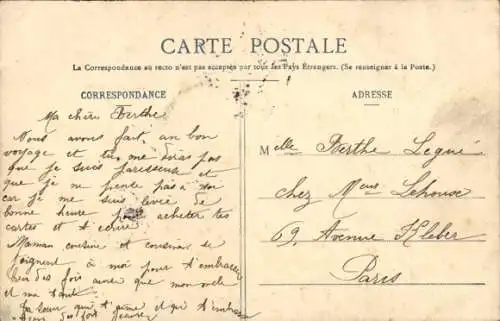 CARTE POSTALE
La Correspondance au recto n'est pas acceptée par tous les Pays Étrangers. (Se renseigner à la Poste.)
CORRESPONDANCE
Ma chère Berthe
Nous avons fait un bon
voyage et tu me diras pas
que je suis paresseuse et
que je ne pense pas à toi
car je me suis levée de
bonne heure pour acheter tes
cartes et t'écrire
Maman cousine et cousins se
joignent à moi pour t'embrasser
bien des fois ainsi que mon
et ma tante
Ta sœur qui t'aime et qui t'embrasse
bien des fois
ADRESSE
Melle Berthe Legué
chez Mme Lehoux
69, Avenue Kleber
Paris